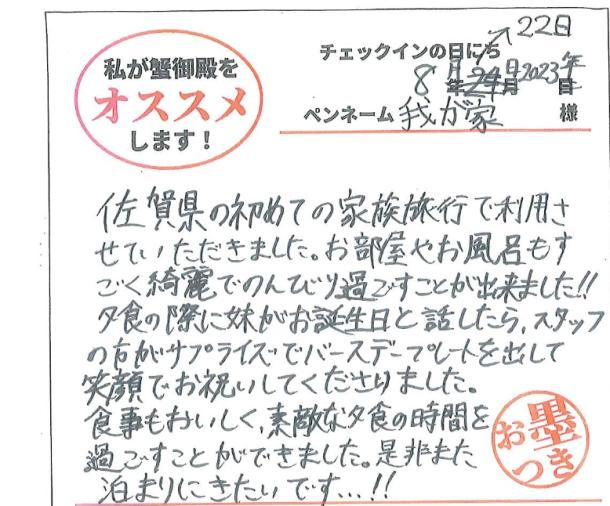 私が蟹御殿を
オススメ
します！
22日
チェックインの日にち
8月24日2023年
ペンネーム 我が家 様
佐賀県の初めての家族旅行で利用さ
せていただきました。お部屋やお風呂もす
ごく綺麗でのんびり過ごすことが出来ました!!
夕食の際に妹がお誕生日と話したら、スタッフ
の方がサプライズでバースデープレートを出して
笑顔でお祝いしてくださりました。
食事もおいしく、素敵な夕食の時間を
過ごすことができました。是非また
泊まりにきたいです...!!
お墨
つき